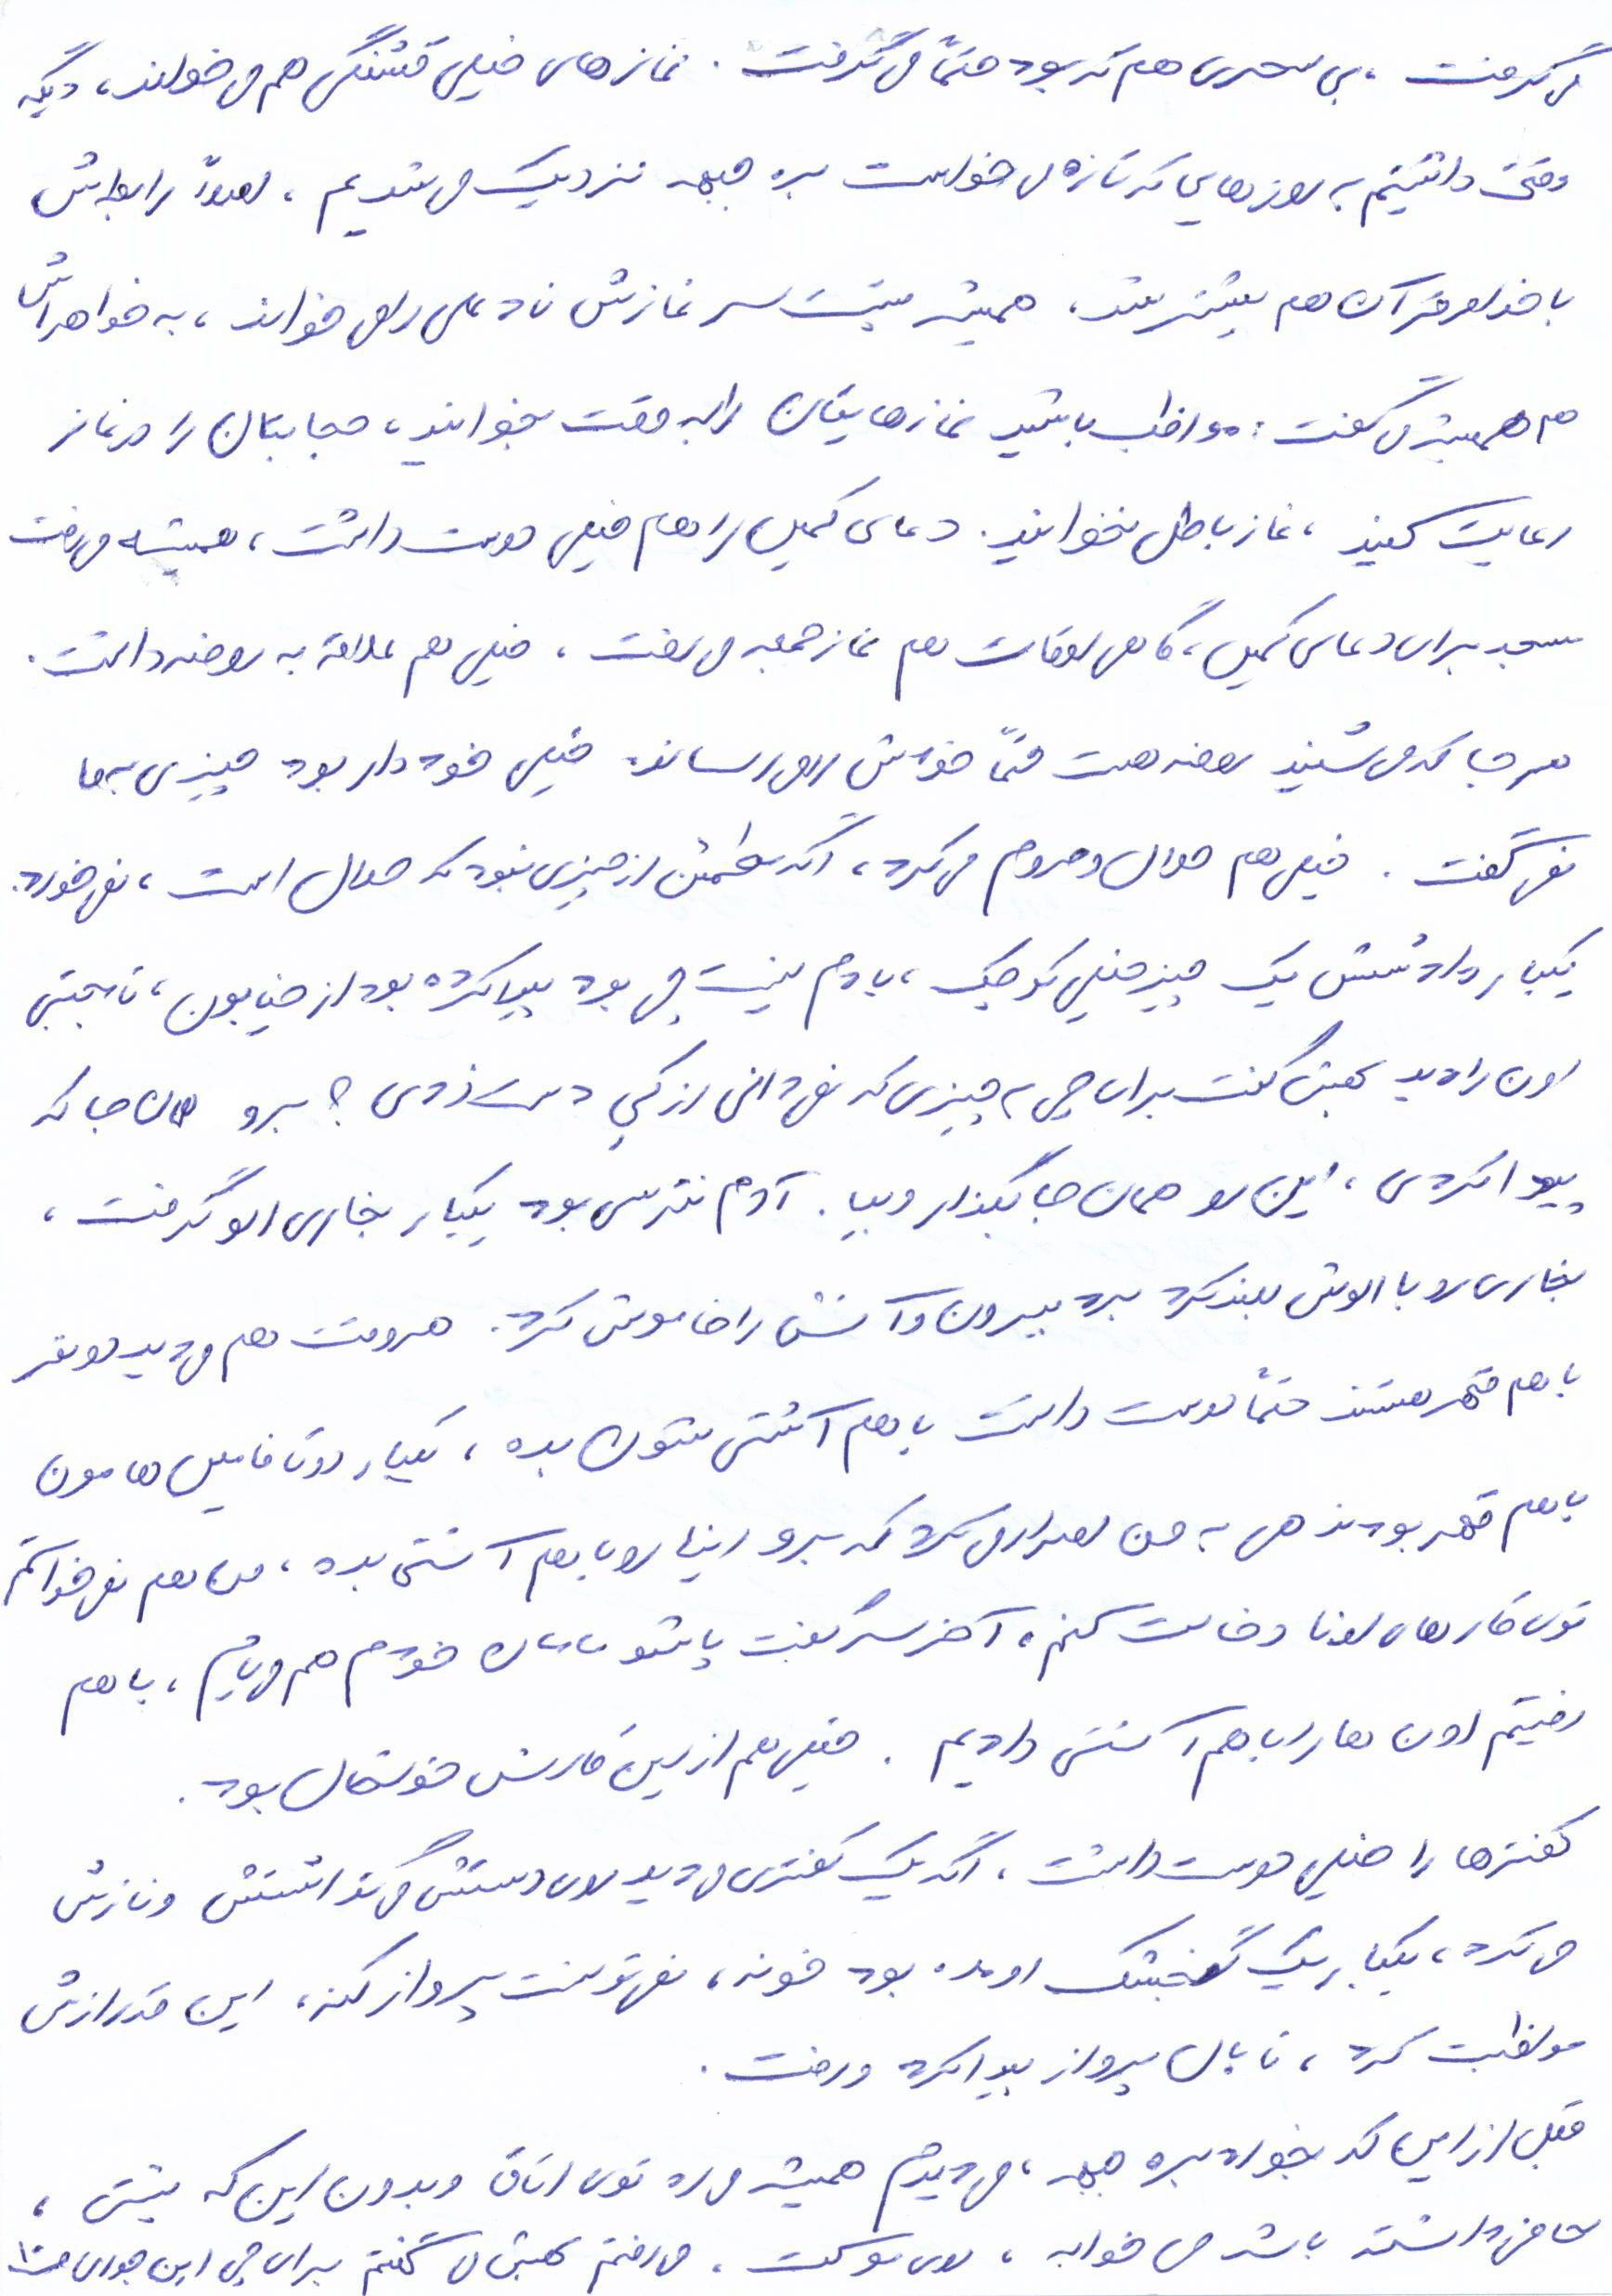 می گرفت، بی سحری هم که بود حتماً می گرفت. نمازهای خیلی قشنگی هم می خواند، دیگه
وقتی داشتیم به روزهایی که تازه می خواست بره جبهه نزدیک می شدیم، اصلاً رابطه اش
با خدا و قرآن هم بیشتر شد، همیشه پشت سر نمازش ناد علی را می خواند، به خواهراش
هم همیشه می گفت: مواظب باشید نمازهایتان را به وقت بخوانید، حجابتان را در نماز
رعایت کنید، نماز باطل نخوانید. دعای کمیل را هم خیلی دوست داشت، همیشه می رفت
مسجد برای دعای کمیل، گاهی اوقات هم نماز جمعه می رفت، خیلی هم علاقه به روضه داشت.
هر جا که می شنید روضه هست حتماً خودش را می رساند. خیلی خوددار بود چیزی به ما
نمی گفت. خیلی هم حلال و حروم می کرد، اگه مطمئن از چیزی نبود که حلال است، نمی خورد.
یکبار داداشش یک چیز خیلی کوچیک، یادم نیست چی بود پیدا کرده بود از خیابون، تا مجتبی
اون را دید بهش گفت برای چی به چیزی که نمی دانی از کیه دست زدی؟ برو همان جا که
پیدا کردی، این رو همان جا بگذار و بیا. آدم نترسی بود یکبار بخاری الو گرفت،
بخاری رو با الوش بلند کرد برد بیرون و آتش را خاموش کرد. هر وقت هم می دید دو نفر
با هم قهر هستند حتماً دوست داشت با هم آشتی شون بده، یکبار دو تا فامیل هامون
با هم قهر بودند هی به من اصرار می کرد که برو اینها رو با هم آشتی بده، من هم نمی خواستم
توی کارهای اونا دخالت کنم، آخرسر گفت پاشو مامان خودم هم می یام، با هم
رفتیم اون ها را با هم آشتی دادیم. خیلی هم از این کارش خوشحال بود.
کفترها را خیلی دوست داشت، اگه یک کفتری می دید روی دستش می گذاشتش و نازش
می کرد، یکبار یک گنجشک اومده بود خونه، نمی تونست پرواز کنه، این قدر ازش
مواظبت کرد، تا بال پرواز پیدا کرد و رفت.
قبل از این که بخواد بره جبهه، می دیدم همیشه می ره توی اتاق و بدون این که پتش،
لحافی داشته باشه می خوابه، روی موکت، می رفتم بهش می گفتم برای چی این جوری